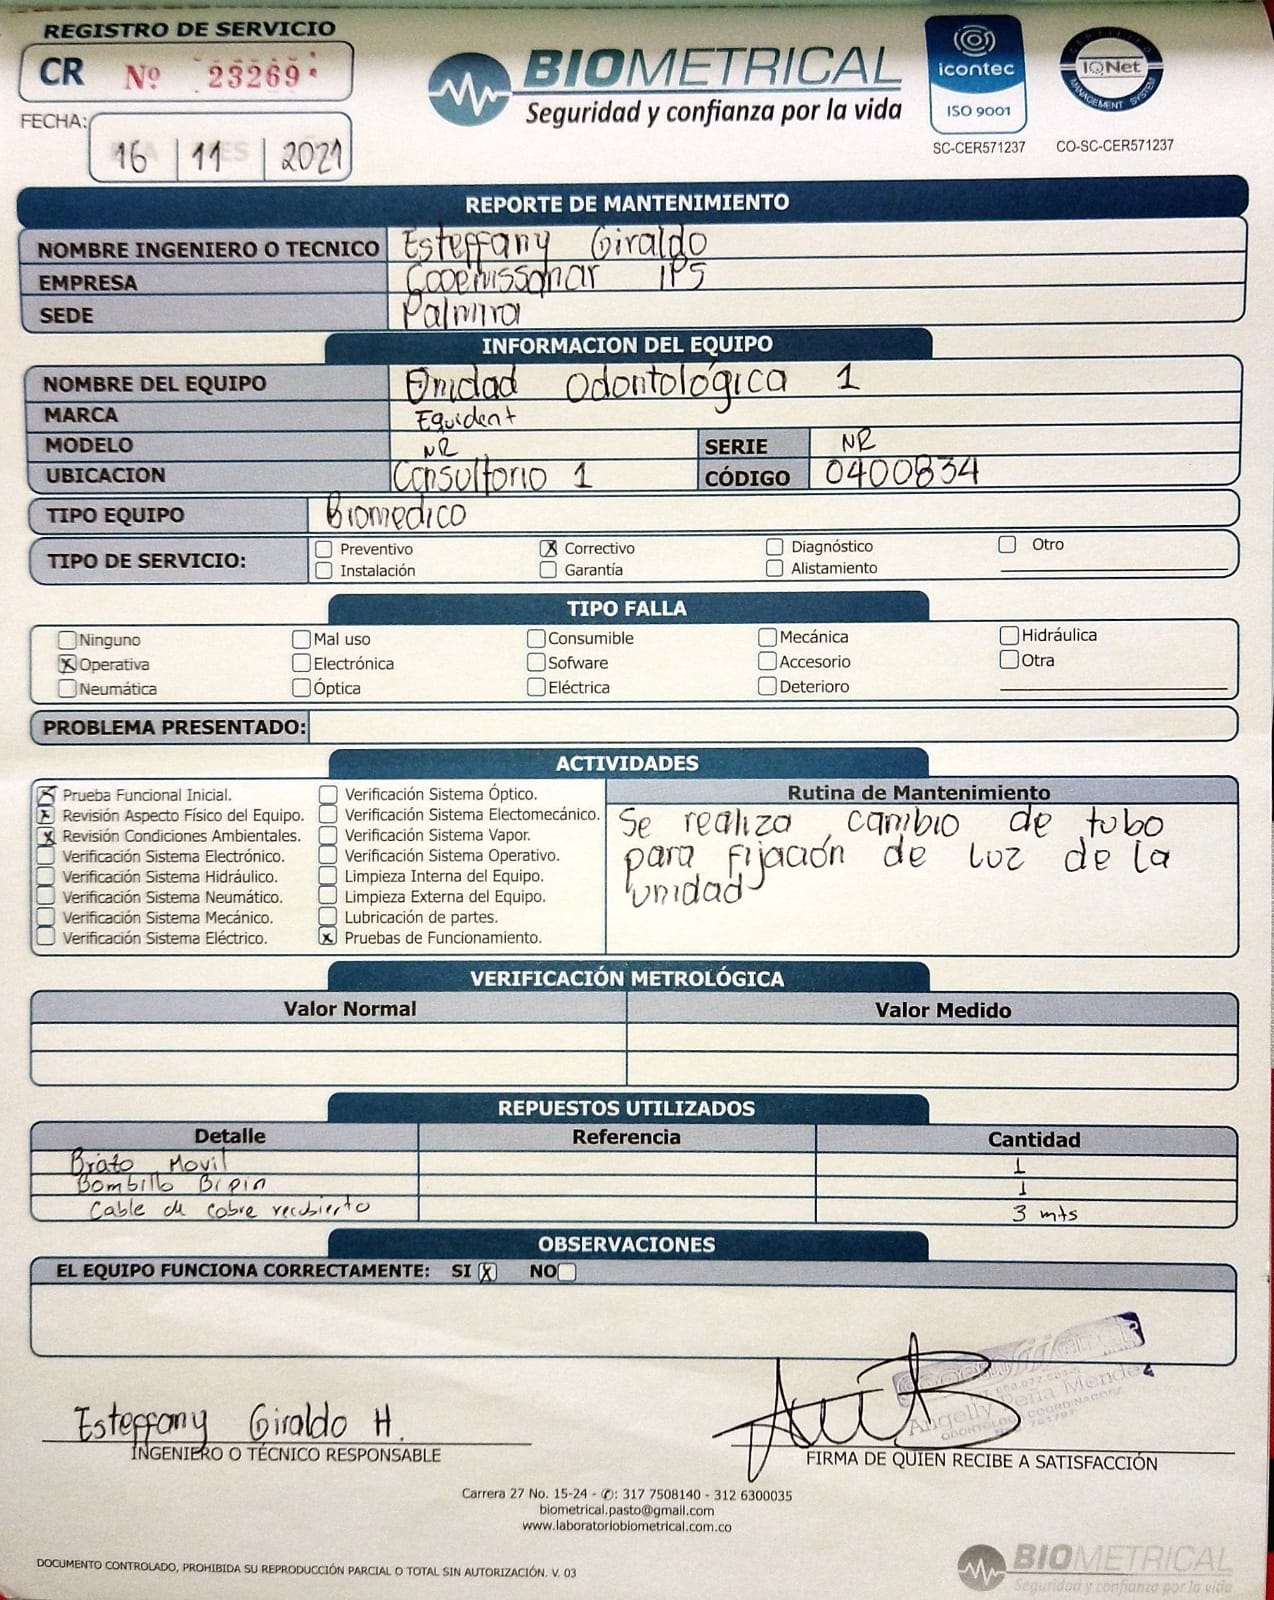 REGISTRO DE SERVICIO
CR Nº 23269
FECHA: 16 | 11 | 2021
BIOMETRICAL
Seguridad y confianza por la vida
icontec
ISO 9001
SC-CER571237
CERTIFIED
IQNet
MANAGEMENT SYSTEM
CO-SC-CER571237
REPORTE DE MANTENIMIENTO
NOMBRE INGENIERO O TECNICO Esteffany Giraldo
EMPRESA Cooemssanar IPS
SEDE Palmira
INFORMACION DEL EQUIPO
NOMBRE DEL EQUIPO Unidad Odontológica 1
MARCA Equident
MODELO NR SERIE NR
UBICACION Consultorio 1 CÓDIGO 0400834
TIPO EQUIPO Biomedico
TIPO DE SERVICIO:
Preventivo X Correctivo Diagnóstico Otro
Instalación Garantía Alistamiento
TIPO FALLA
Ninguno Mal uso Consumible Mecánica Hidráulica
X Operativa Electrónica Sofware Accesorio Otra
Neumática Óptica Eléctrica Deterioro
PROBLEMA PRESENTADO:
ACTIVIDADES
X Prueba Funcional Inicial.
X Revisión Aspecto Físico del Equipo.
X Revisión Condiciones Ambientales.
Verificación Sistema Electrónico.
Verificación Sistema Hidráulico.
Verificación Sistema Neumático.
Verificación Sistema Mecánico.
Verificación Sistema Eléctrico.
Verificación Sistema Óptico.
Verificación Sistema Electomecánico.
Verificación Sistema Vapor.
Verificación Sistema Operativo.
Limpieza Interna del Equipo.
Limpieza Externa del Equipo.
Lubricación de partes.
X Pruebas de Funcionamiento.
Rutina de Mantenimiento
Se realiza cambio de tubo
para fijación de luz de la
unidad
VERIFICACIÓN METROLÓGICA
Valor Normal Valor Medido
REPUESTOS UTILIZADOS
Detalle Referencia Cantidad
Brazo Movil 1
Bombillo Bipin 1
Cable de cobre recubierto 3 mts
OBSERVACIONES
EL EQUIPO FUNCIONA CORRECTAMENTE: SI X NO
Angelly Peña Mendez
ODONTOLOGA COORDINADORA
Esteffany Giraldo H.
INGENIERO O TÉCNICO RESPONSABLE
FIRMA DE QUIEN RECIBE A SATISFACCIÓN
Carrera 27 No. 15-24 - ✆: 317 7508140 - 312 6300035
biometrical.pasto@gmail.com
www.laboratoriobiometrical.com.co
DOCUMENTO CONTROLADO, PROHIBIDA SU REPRODUCCIÓN PARCIAL O TOTAL SIN AUTORIZACIÓN. V. 03
BIOMETRICAL
Seguridad y confianza por la vida